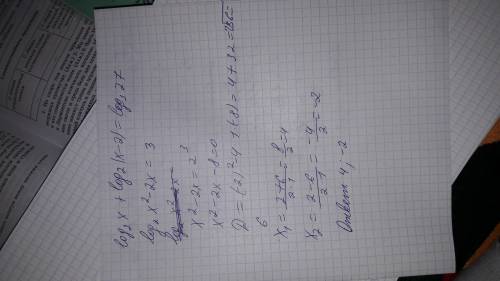 log₂x + log₂(x-2) = log₃27
log₂ x²-2x = 3
x²-2x = 2³
x²-2x-8=0
D=(2)²-4·1·(-8)=4+32=√36=
6
x₁ = 2+6/2·1 = 8/2 = 4
x₂ = 2-6/2·1 = -4/2 = -2
Ответ 4; -2